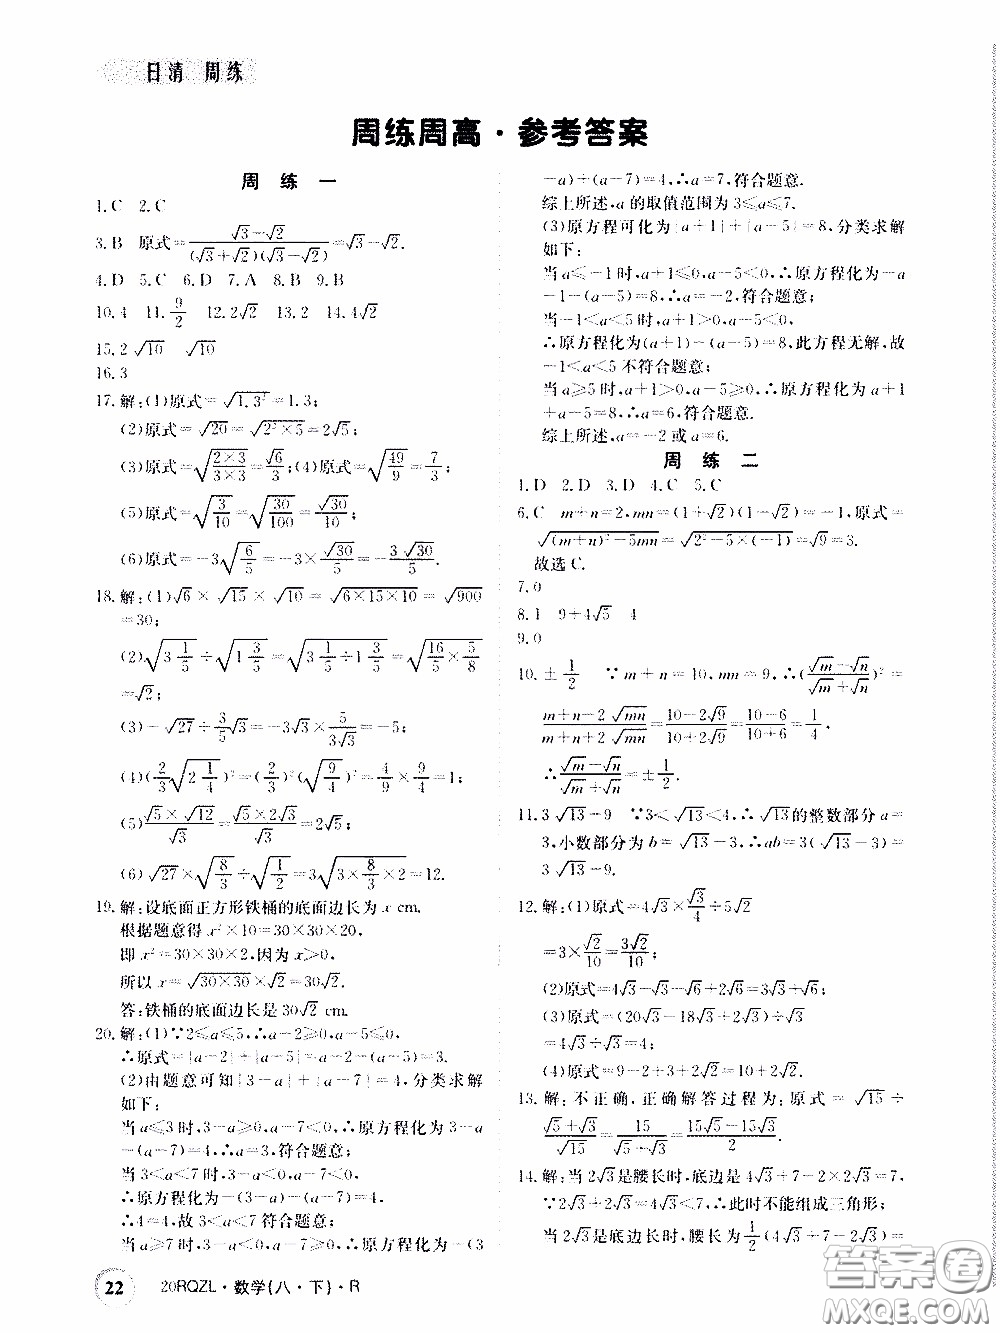 日清 周练
周练周高·参考答案
周 练 一
1.C 2.C
3.B 原式=(√3-√2)/((√3+√2)(√3-√2))=√3-√2.
4.D 5.C 6.D 7.A 8.B 9.B
10.4 11.9/2 12.2√2 13.2 14.4√2
15.2√10 √10
16.3
17.解:(1)原式=√1.3²=1.3;
(2)原式=√20=√(2²×5)=2√5;
(3)原式=√((2×3)/(3×3))=√6/3;(4)原式=√(49/9)=7/3;
(5)原式=√(3/10)=√(30/100)=√30/10;
(6)原式=-3√(6/5)=-3×√30/5=-3√30/5.
18.解:(1)√6×√15×√10=√(6×15×10)=√900
=30;
(2)√(3 1/5)÷√(1 3/5)=√(3 1/5÷1 3/5)=√(16/5×5/8)
=√2;
(3)-√27÷(3/5)√3=-3√3×5/(3√3)=-5;
(4)(2/3√(2 1/4))²=(2/3)²(√(9/4))²=4/9×9/4=1;
(5)(√5×√12)/√3=(√5×2√3)/√3=2√5;
(6)√27×√(8/3)÷√(1/2)=3√(3×8/3×2)=12.
19.解:设底面正方形铁桶的底面边长为x cm.
根据题意得x²×10=30×30×20,
即x²=30×30×2,因为x>0,
所以x=√(30×30)×√2=30√2.
答:铁桶的底面边长是30√2 cm.
20.解:(1)∵2≤a≤5,∴a-2≥0,a-5≤0,
∴原式=|a-2|+|a-5|=a-2-(a-5)=3.
(2)由题意可知|3-a|+|a-7|=4,分类求解
如下:
当a≤3时,3-a≥0,a-7<0,∴原方程化为3-a
-(a-7)=4,∴a=3,符合题意;
当3<a<7时,3-a<0,a-7<0,
∴原方程化为-(3-a)-(a-7)=4,
∴4=4,故3<a<7符合题意;
当a≥7时,3-a<0,a-7≥0,∴原方程化为-(3
-a)+(a-7)=4,∴a=7,符合题意.
综上所述,a的取值范围为3≤a≤7.
(3)原方程可化为|a+1|+|a-5|=8,分类求解
如下:
当a≤-1时,a+1≤0,a-5<0,∴原方程化为-a
-1-(a-5)=8,∴a=-2,符合题意;
当-1<a<5时,a+1>0,a-5<0,
∴原方程化为(a+1)-(a-5)=8,此方程无解,故
-1<a<5不符合题意;
当a≥5时,a+1>0,a-5≥0,∴原方程化为a+1
+a-5=8,∴a=6,符合题意.
综上所述,a=-2或a=6.
周 练 二
1.D 2.D 3.D 4.C 5.C
6.C m+n=2,mn=(1+√2)(1-√2)=-1,原式=
√((m+n)²-5mn)=√(2²-5×(-1))=√9=3.
故选C.
7.0
8.1 9+4√5 4
9.0
10.±1/2 ∵m+n=10,mn=9,∴((√m-√n)/(√m+√n))²=
(m+n-2√mn)/(m+n+2√mn)=(10-2√9)/(10+2√9)=(10-6)/(10+6)=1/4,
∴(√m-√n)/(√m+√n)=±1/2.
11.3√13-9 ∵3<√13<4,∴√13的整数部分a=
3,小数部分为b=√13-3,∴ab=3(√13-3)=
3√13-9.
12.解:(1)原式=4√3×√3/4÷5√2
=3×√2/10=3√2/10;
(2)原式=4√3-√3-√6+2√6=3√3+√6;
(3)原式=(20√3-18√3+2√3)÷√3
=4√3÷√3=4;
(4)原式=9-2+3+2√2=10+2√2.
13.解:不正确,正确解答过程为:原式=√15÷
(√5+√3)/√15=15/(√5+√3)=(15√5-15√3)/2.
14.解:当2√3是腰长时,底边是4√3+7-2×2√3=7,
∵2√3+2√3=4√3<7,∴此时不能组成三角形;
当2√3是底边时,腰长为1/2(4√3+7-2√3)=√3+
22 20RQZL·数学(八·下)·R
答案圈
MXQE.COM